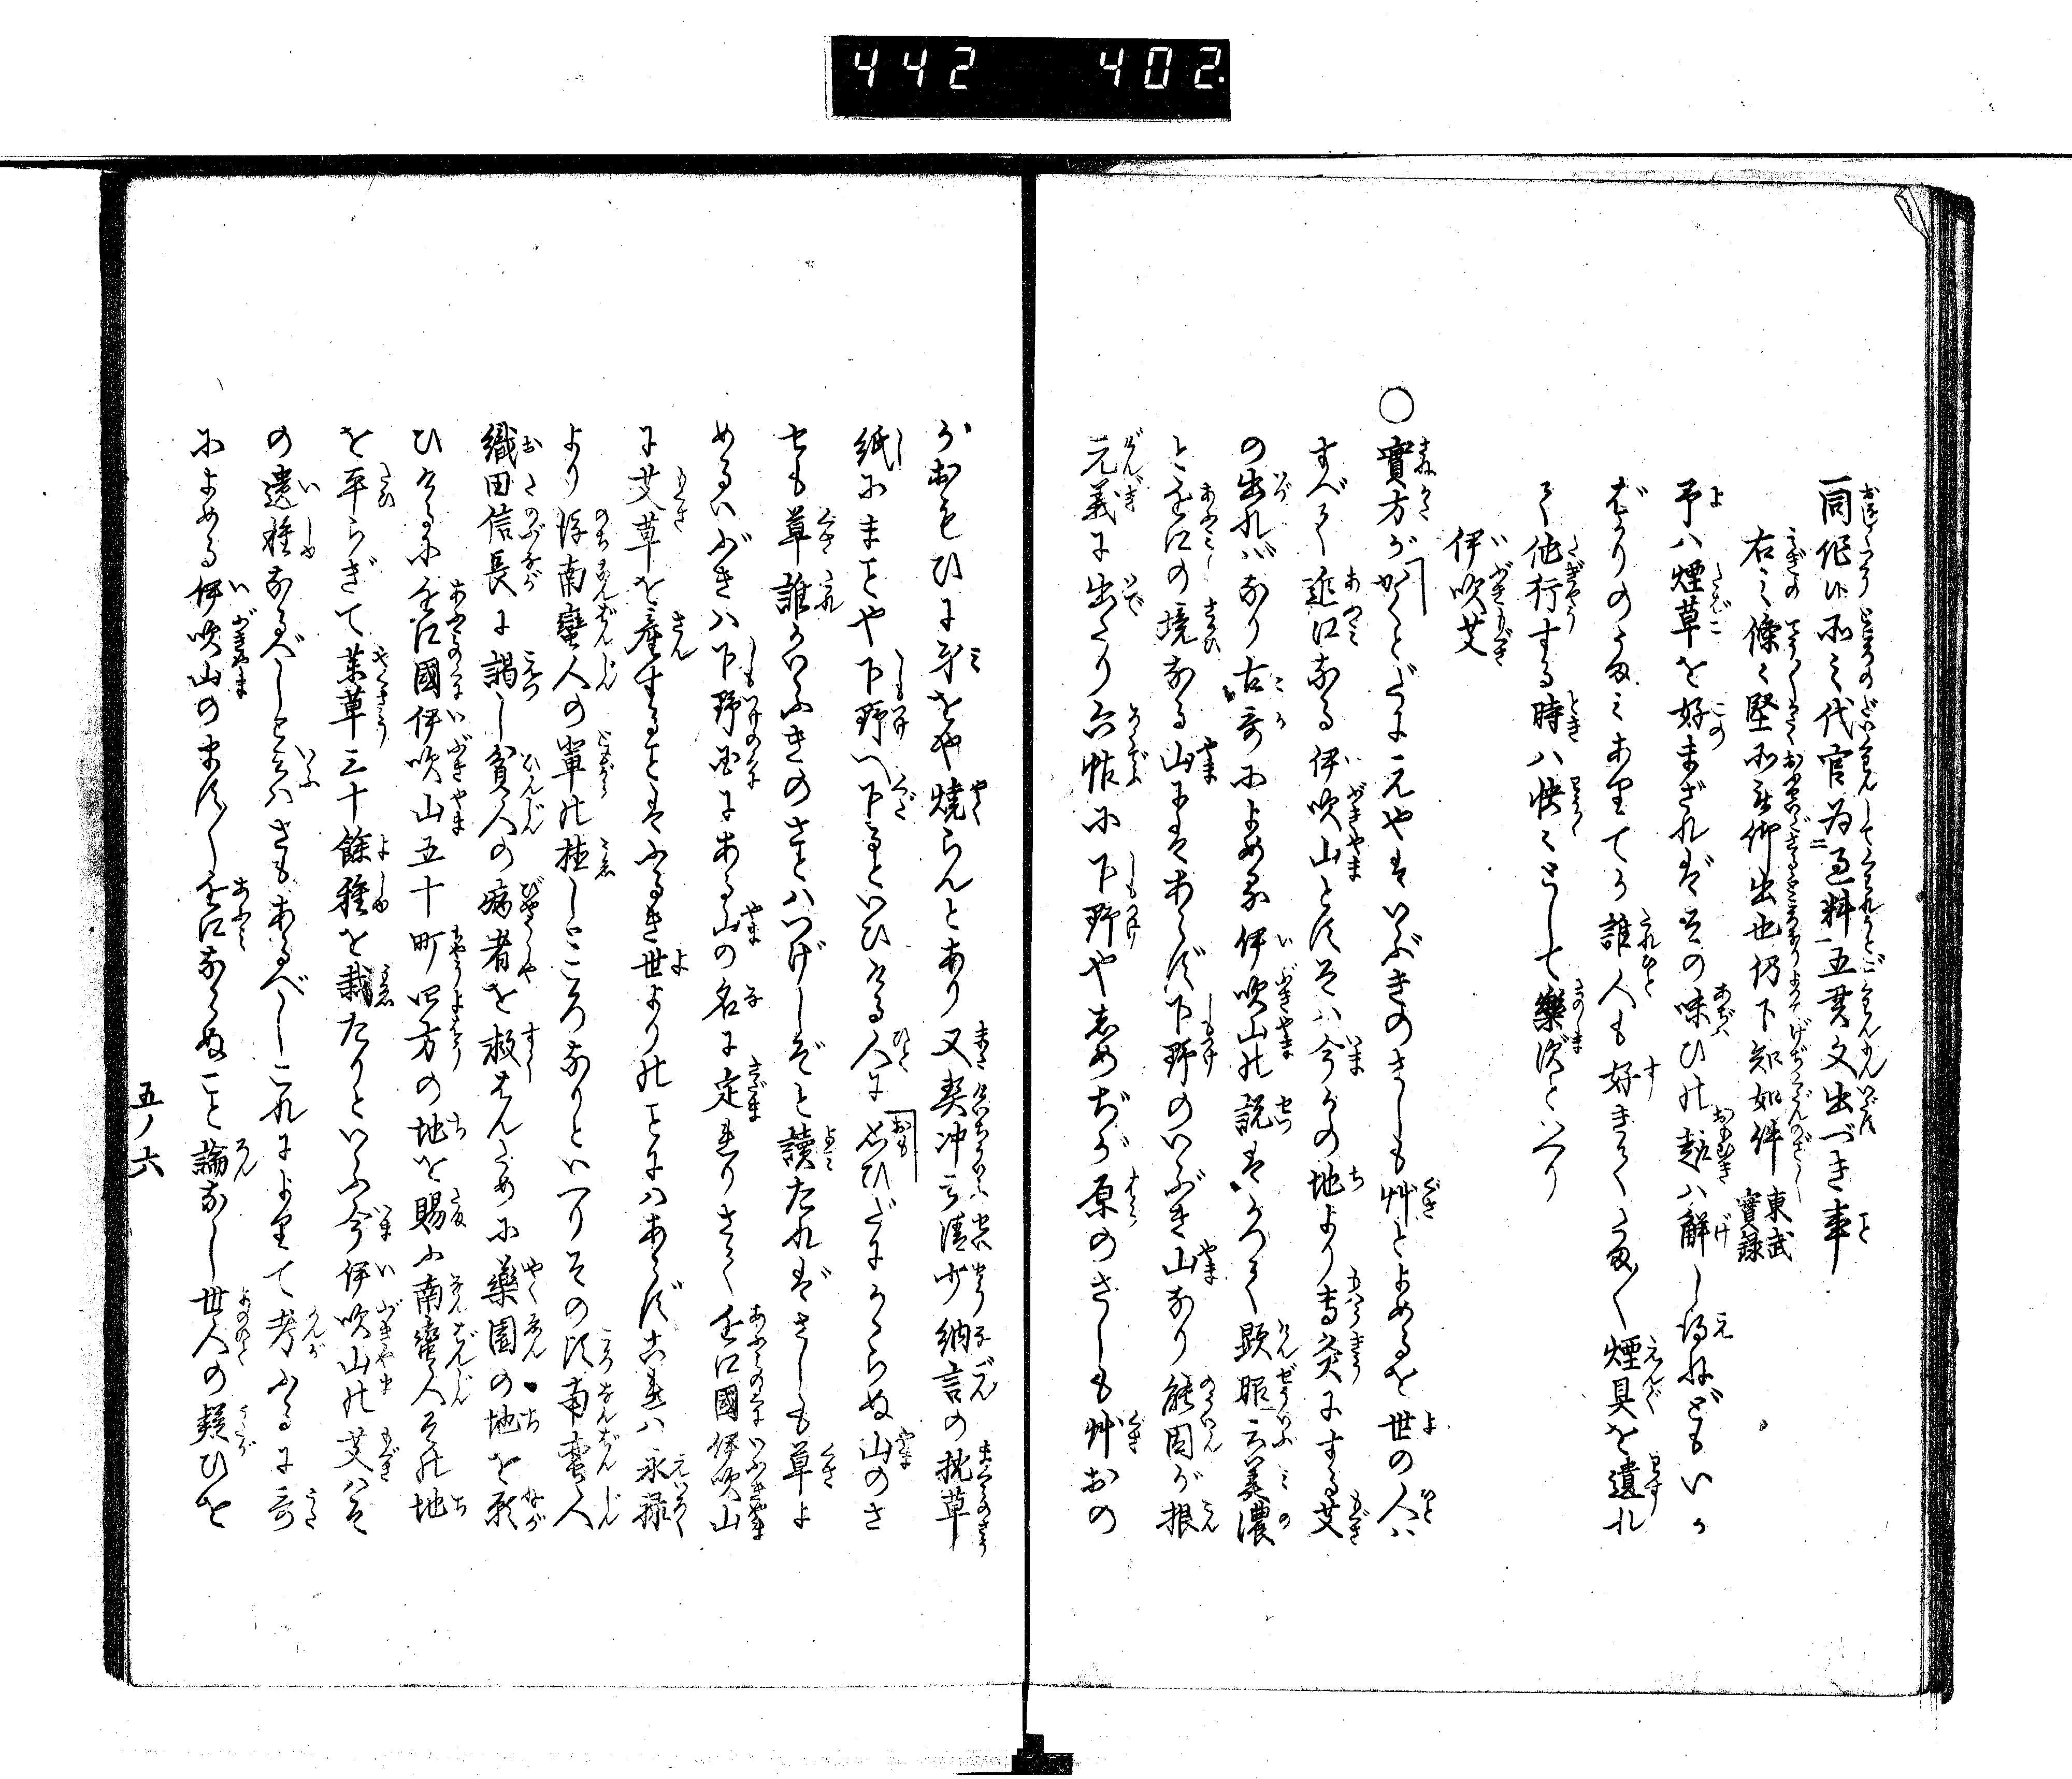 442 402.
一同作候所之代官為過料五貫文出づき事
右之條々堅所被仰出也仍下知如件 東武實録
予ハ煙草を好まざれどその味ひの趣ハ解し得ねどもいか
ばかりのためあまりてか誰人も好きてたま〱煙具を遺れ
て他行する時ハ怏々として楽まずといへり
伊吹艾
○實方がかくとだにえやはいぶきのさしも艸とよめるを世の人ハ
すべて近江なる伊吹山とすそハ今かの地より専灸にする艾
の出ればなり古哥によめる伊吹山の説はかつて顕昭云美濃
と近江の境なる山にはあらず下野のいぶき山なり能因が根
元義に出たり六帖に下野や志めぢが原のさしも艸おの
がおもひに身をや焼らんとあり又契沖云清少納言の枕草
紙にまことや下野へ下るといひける人に思ひだにかゝらぬ山のさ
せも草誰かいふきのさとハつげしぞと讀たればさしも草よ
めるいぶきハ下野国にある山の名に定まりさて近江國伊吹山
に艾草を産することはふるき世よりのことにハあらず古老ハ永禄
より後南蛮人の軍の植しところなりといへりその頃南蛮人
織田信長に謁し貧人の病者を救はんために薬園の地を願
ひけるに近江國伊吹山五十町四方の地を賜ふ南蛮人その地
を平らげて薬草三十餘種を栽たりといふ今伊吹山の艾はそ
の遺種なるべしと云ハさもあるべしこれによりて考ふるに哥
によめる伊吹山のまさしく近江ならぬこと論なし世人の疑ひを
五ノ六